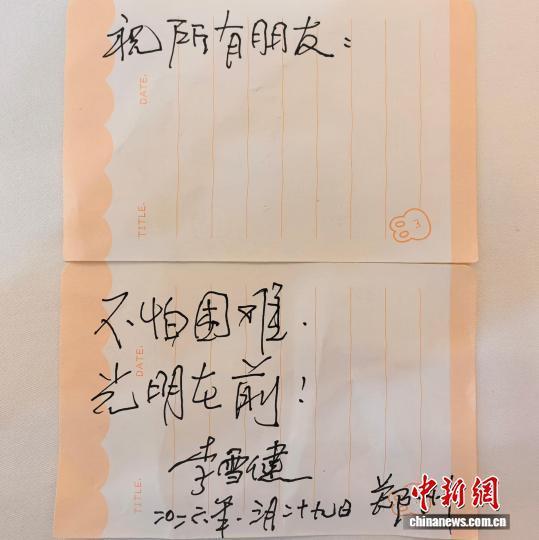 祝所有朋友：
DATE.
TITLE.
3
不怕困难.
光明在前！
DATE.
TITLE.
李雪健
二〇二六年.二月二十九日
郑
中新网
chinanews.com